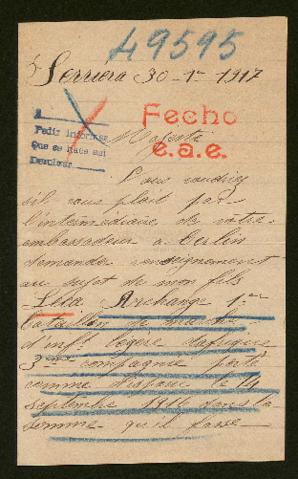 49595
Serriera 30-1er 1917
Fecho
e.a.e.
Pedir informes
Que se hace est
Devolver
Majesté
Vous voudrez
sil vous plait par
l'intermédiaire de votre
embassadeur a Berlin
demande renseignement
au sujet de mon fils
Archange 1er
bataillon de marche
d'inftie legere dafrique
3me compagnie porté
comme disparu le 14
Septembre 1916 dans la
Somme qu'il fasse